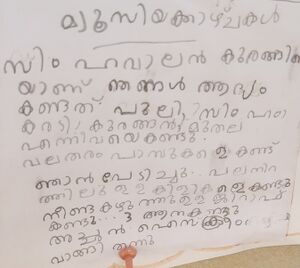 മ്യൂസിയക്കാഴ്ചകൾ
സിംഹവാലൻ കുരങ്ങി
യാണ് ഞങ്ങൾ ആദ്യം
കണ്ടത് പുലി, സിംഹം
കരടി, കുരങ്ങൻ, മുതല
എന്നിവയെകണ്ടു.
പലതരം പാമ്പുകളെ കണ്ട്
ഞാൻ പേടിച്ചു.. പലനിറ
ത്തിലുള്ള കിളികളെകണ്ടു
നീണ്ടകഴുത്തുള്ള ജിറാഫ്
കണ്ടു... 3 ആനകണ്ടു
അച്ചൻ ഐസ്ക്രീം
വാങ്ങി തന്നു